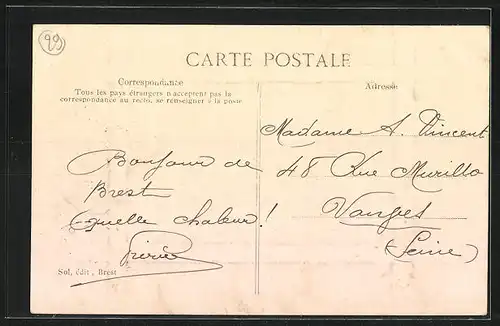 99
CARTE POSTALE
Correspondance
Tous les pays étrangers n'acceptent pas la
correspondance au recto, se renseigner à la poste
Adresse
Bonjour de
Brest
Quelle chaleur !
Sol, édit., Brest
Madame A. Vincent
48 Rue Murillo
Vanves
(Seine)